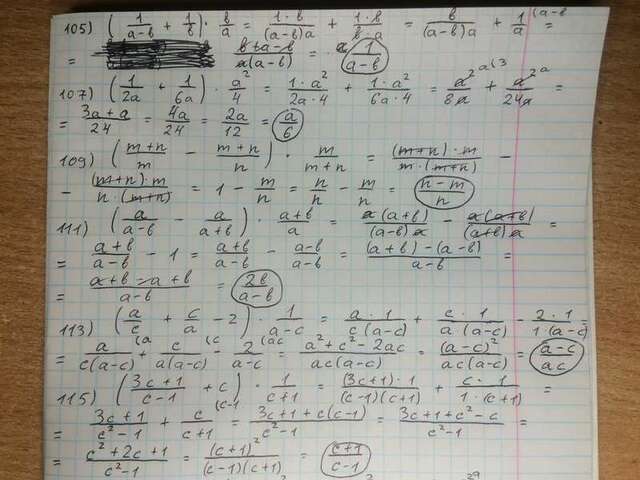 105) (1/(a-b) + 1/b) · b/a = (1·b)/((a-b)a) + (1·b)/(b·a) = b/((a-b)a) + 1/a (a-b =
= (b+a-b)/(a(a-b)) = 1/(a-b)
107) (1/(2a) + 1/(6a)) · a²/4 = (1·a²)/(2a·4) + (1·a²)/(6a·4) = a²/(8a) (3 + a²/(24a) =
= (3a+a)/24 = 4a/24 = 2a/12 = a/6
109) ((m+n)/m - (m+n)/n) · m/(m+n) = ((m+n)·m)/(m·(m+n)) -
- ((m+n)·m)/(n·(m+n)) = 1 - m/n = n/n - m/n = (n-m)/n
111) (a/(a-b) - a/(a+b)) · (a+b)/a = (a(a+b))/((a-b)a) - (a(a+b))/((a+b)a) =
= (a+b)/(a-b) - 1 = (a+b)/(a-b) - (a-b)/(a-b) = ((a+b)-(a-b))/(a-b) =
= (a+b-a+b)/(a-b) = 2b/(a-b)
113) (a/c + c/a - 2) · 1/(a-c) = (a·1)/(c(a-c)) + (c·1)/(a·(a-c)) - (2·1)/(1·(a-c)) =
= a/(c(a-c)) (a + c/(a(a-c)) (c - 2/(a-c) (ac = (a²+c²-2ac)/(ac(a-c)) = (a-c)²/(ac(a-c)) = (a-c)/(ac)
115) ((3c+1)/(c-1) + c) · 1/(c+1) = ((3c+1)·1)/((c-1)(c+1)) + (c·1)/(1·(c+1)) =
= (3c+1)/(c²-1) + c/(c+1) (c-1 = (3c+1+c(c-1))/(c²-1) = (3c+1+c²-c)/(c²-1) =
= (c²+2c+1)/(c²-1) = (c+1)²/((c-1)(c+1)) = (c+1)/(c-1)